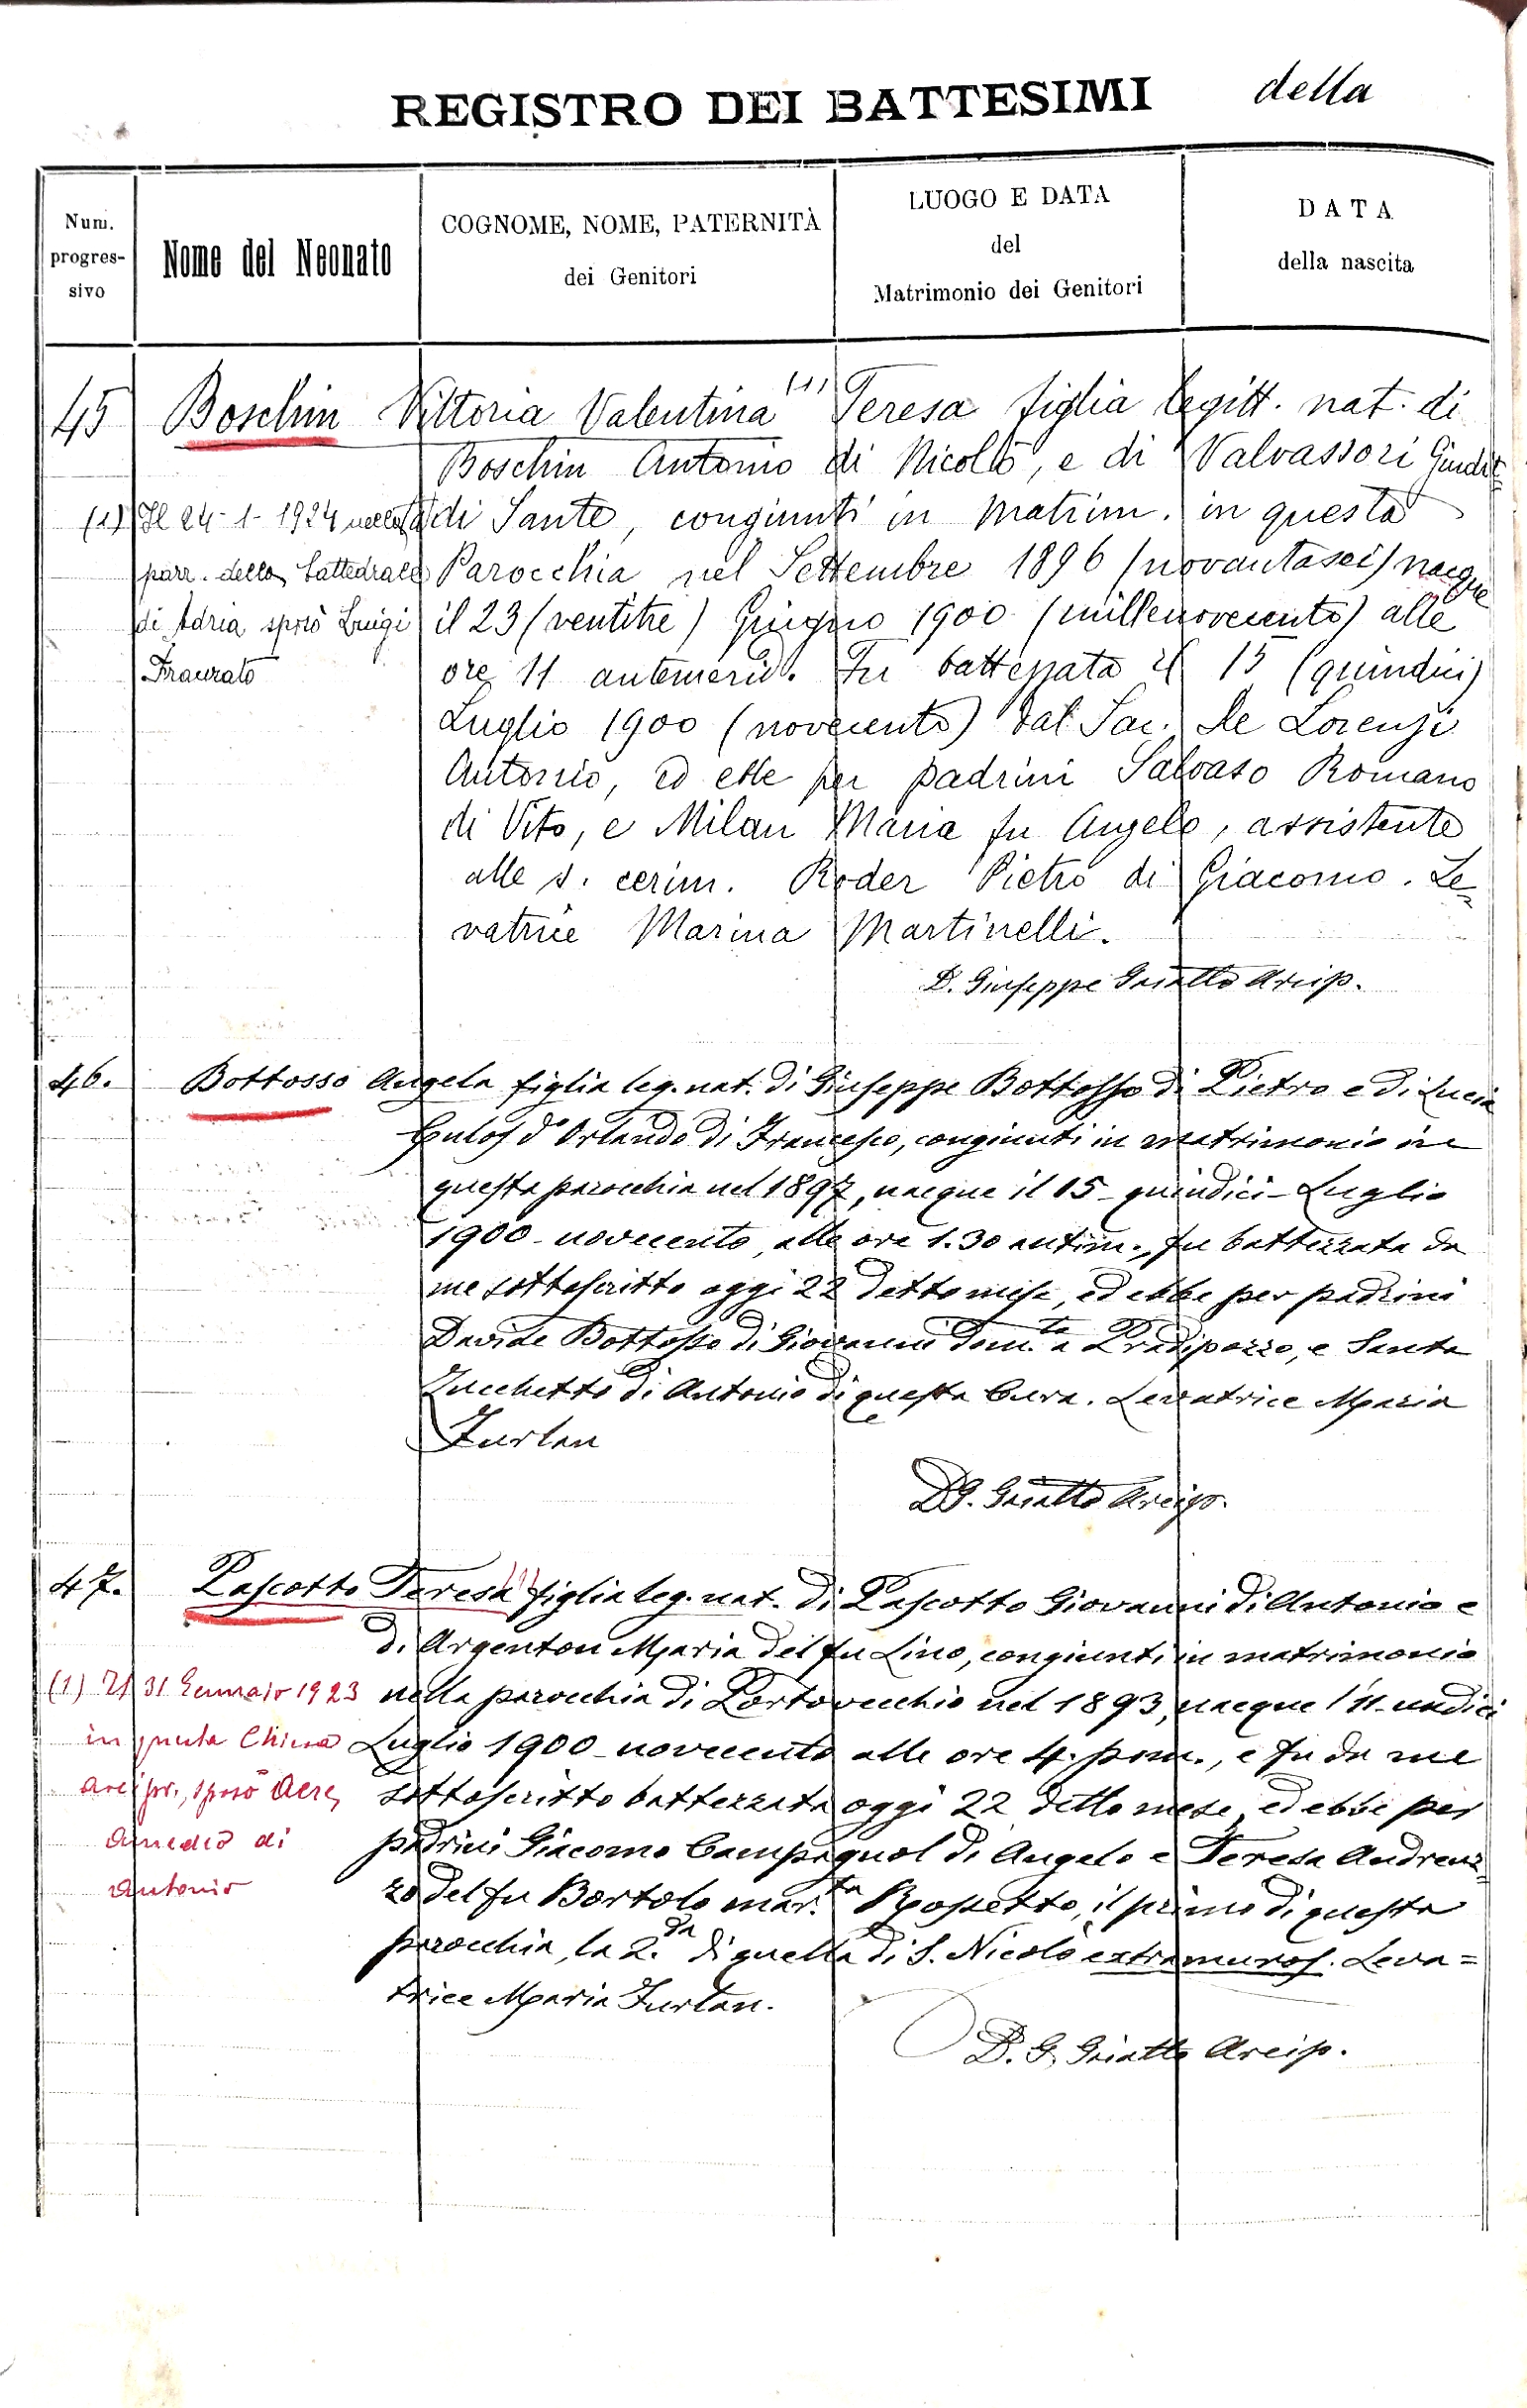 REGISTRO DEI BATTESIMI della
Num. progres- sivo
Nome del Neonato
COGNOME, NOME, PATERNITÀ
dei Genitori
LUOGO E DATA
del
Matrimonio dei Genitori
DATA
della nascita
45 Boschin Vittoria Valentina (1) Teresa figlia legitt. nat. di
Boschin Antonio di Nicolò, e di Valvassori Giudit=
ta di Sante, congiunti in matrim. in questa
Parocchia nel Settembre 1896 (novantasei) nacque
il 23 (ventitre) Giugno 1900 (millenovecento) alle
ore 11 antemerid. Fu battezzata il 15 (quindici)
Luglio 1900 (novecento) dal Sac. De Lorenzi
Antonio, ed ebbe per padrini Salvaso Romano
di Vito, e Milan Maria fu Angelo, assistente
alle s. cerim. Roder Pietro di Giacomo. Le=
vatrice Marina Martinelli.
D. Giuseppe Arcip.
(1) Il 24-1-1924 nella
parr. della Cattedrale
di Adria sposò Luigi
46. Bottosso Angela figlia leg. nat. di Giuseppe Bottosso di Pietro e di Lucia
d'Orlando di Francesco, congiunti in matrimonio in
questa parocchia nel 1897, nacque il 15 - quindici - Luglio
1900 - novecento, alle ore 1.30 antim., fu battezzata da
me sottoscritto oggi 22 detto mese, ed ebbe per padrini
Davide Bottosso di Giovanni dom.to a Pradipozzo, e Santa
Zucchetto di Antonio di questa Cura. Levatrice Maria
Furlan
D G. Arcip.
47. Pascotto Teresa (1) figlia leg. nat. di Pascotto Giovanni di Antonio e
di Argenton Maria del fu Lino, congiunti in matrimonio
nella parocchia di Portovecchio nel 1893, nacque l'11 - undici
Luglio 1900 - novecento alle ore 4. pom., e fu da me
sottoscritto battezzata oggi 22 detto mese, ed ebbe per
padrini Giacomo Campagnol di Angelo e Teresa Andreuz=
zo del fu Bortolo mar.ta Rossetto, il primo di questa
parocchia, la 2.da di quella di S. Nicolò extramuros. Leva=
trice Maria Furlan.
D. G. Arcip.
(1) Il 31 Gennaio 1923
in questa Chiesa
arcipr., sposò
Amedeo di
Antonio